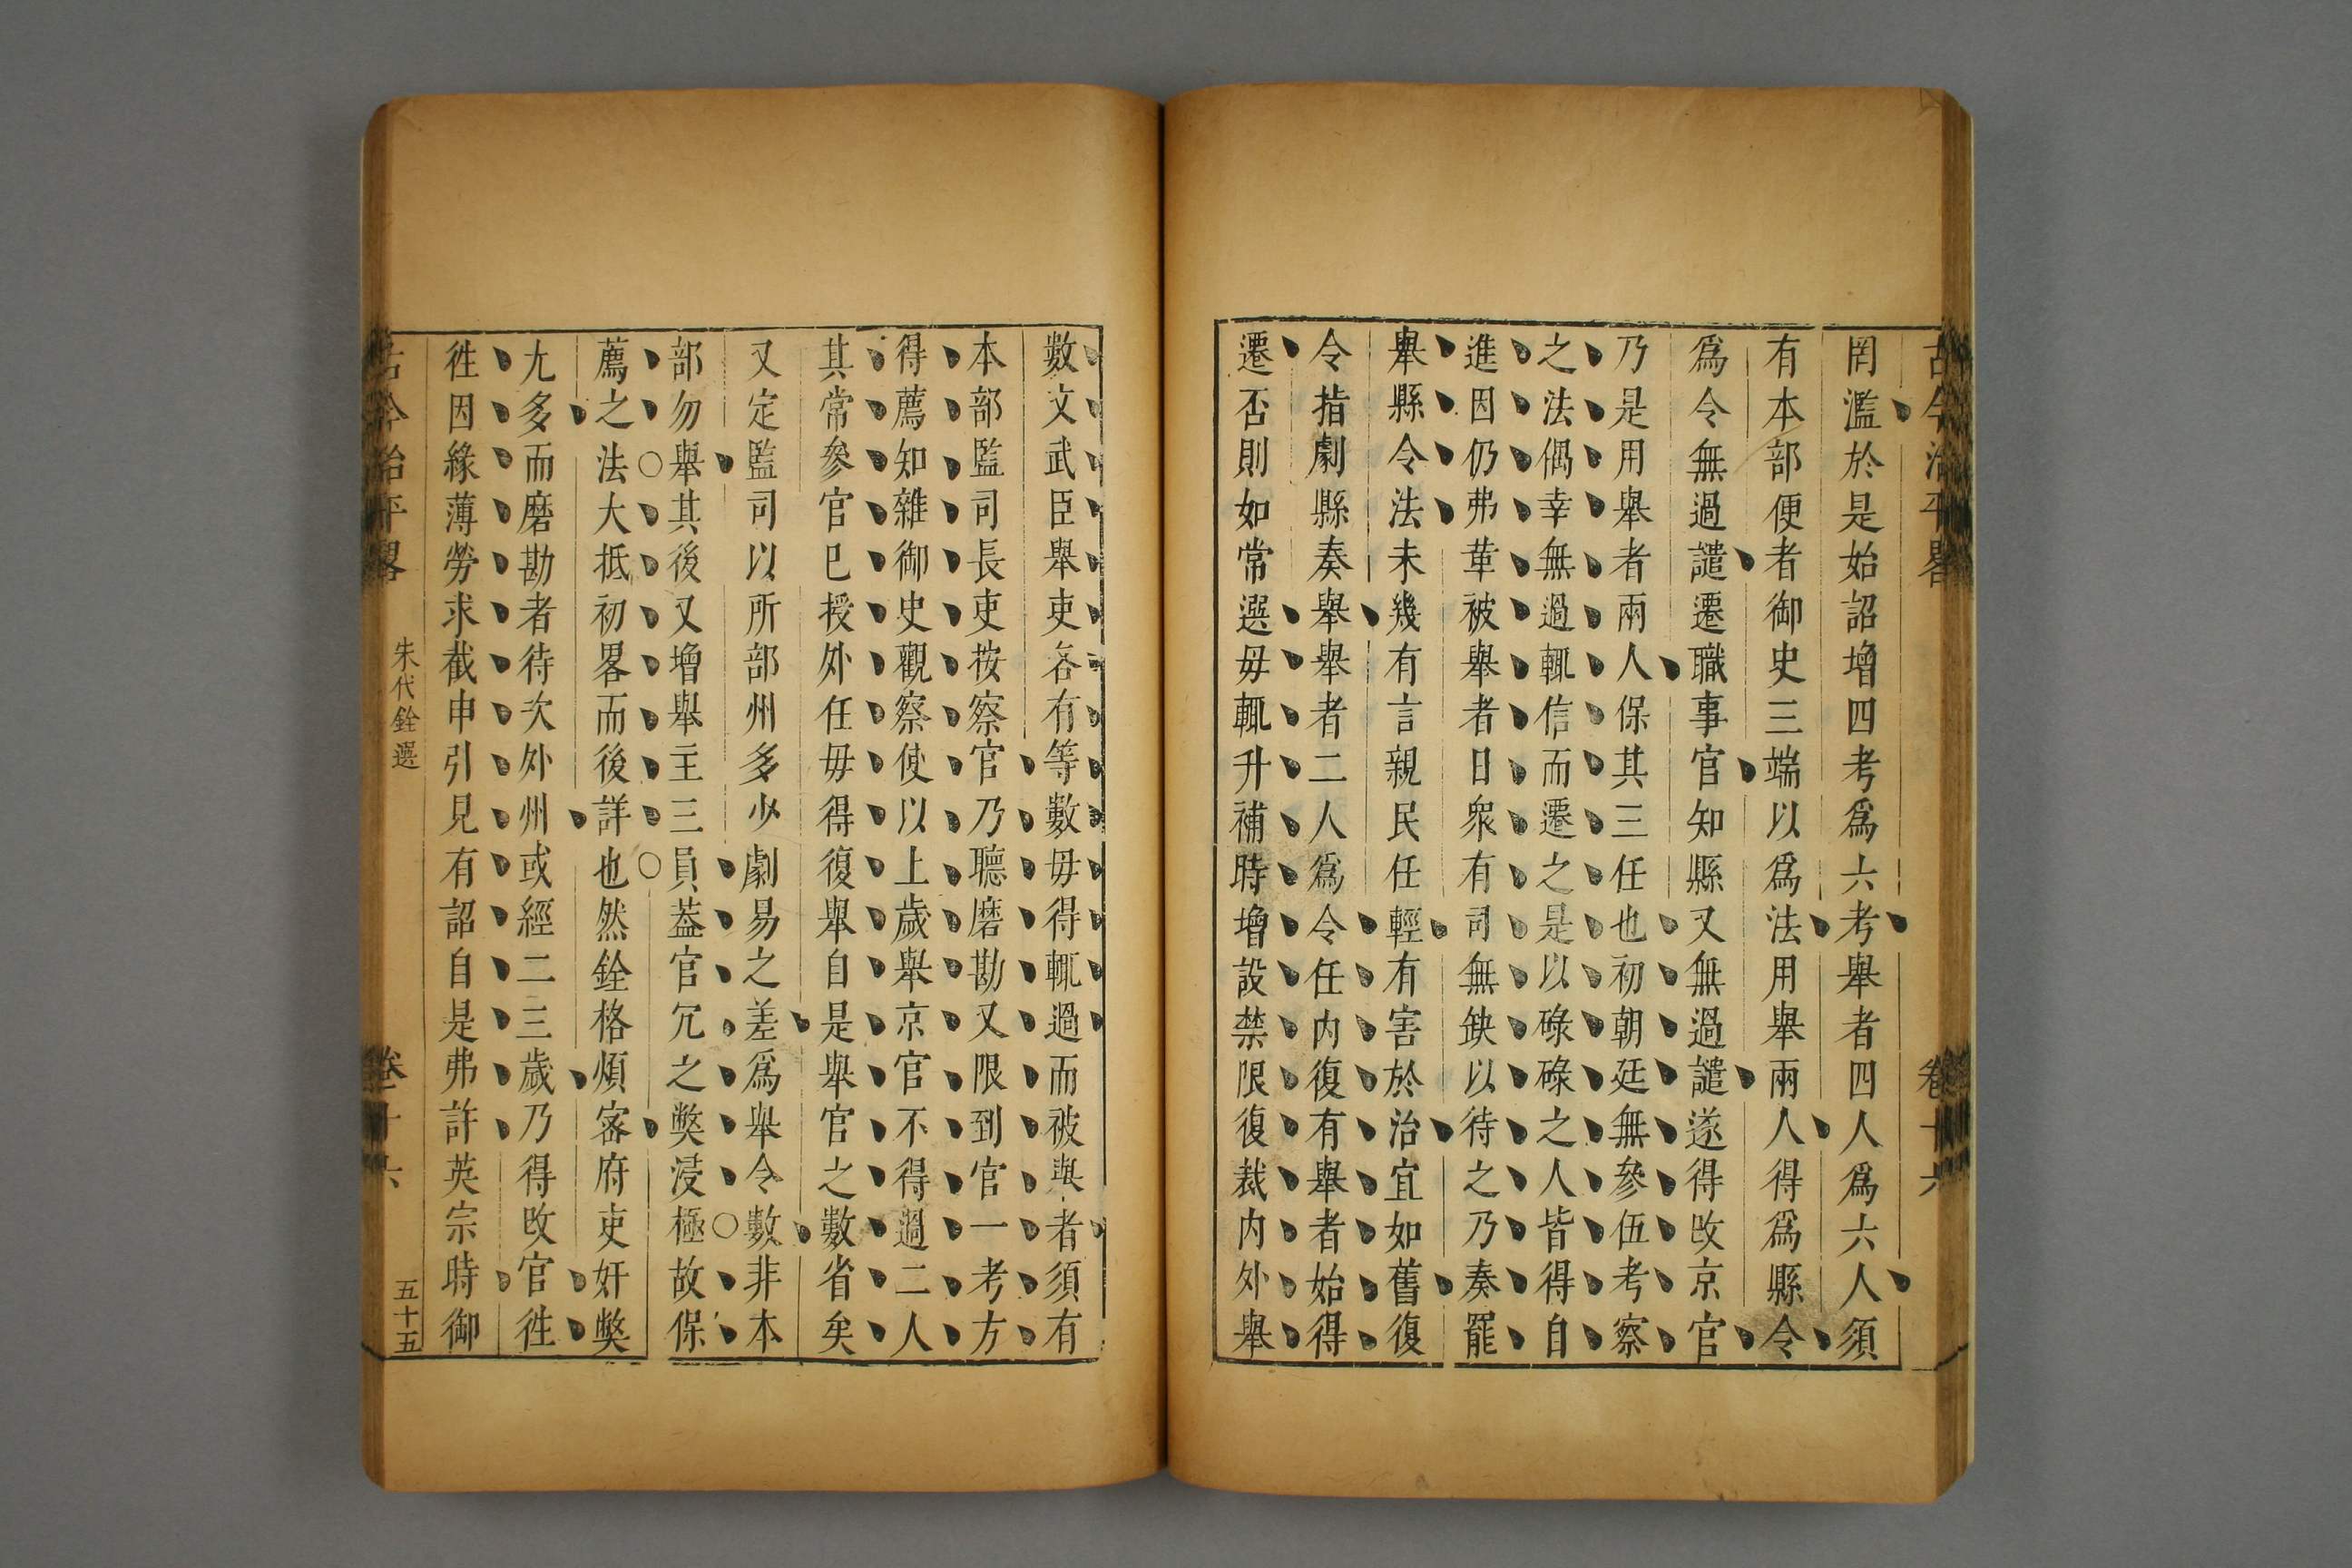 古今治平畧
卷十六
罔濫於是始詔增四考爲六考舉者四人爲六人須
有本部便者御史三端以爲法用舉兩人得爲縣令
爲令無過譴遷職事官知縣又無過譴遂得改京官
乃是用舉者兩人保其三任也初朝廷無參伍考察
之法偶幸無過輒信而遷之是以碌碌之人皆得自
進因仍弗革被舉者日衆有司無缺以待之乃奏罷
舉縣令法未幾有言親民任輕有害於治宜如舊復
令指劇縣奏舉舉者二人爲令任内復有舉者始得
遷否則如常選毋輒升補時增設禁限復裁内外舉
數文武臣舉吏各有等數毋得輒過而被舉者須有
本部監司長吏按察官乃聽磨勘又限到官一考方
得薦知雜御史觀察使以上歲舉京官不得過二人
其常參官已授外任毋得復舉自是舉官之數省矣
又定監司以所部州多少劇易之差爲舉令數非本
部勿舉其後又增舉主三員葢官冗之獘浸極故保
薦之法大抵初畧而後詳也然銓格煩密府吏奸獘
尤多而磨勘者待次外州或經二三歲乃得改官徃
徃因緣薄勞求截申引見有詔自是弗許英宗時御
古今治平畧
朱代銓選
卷十六
五十五